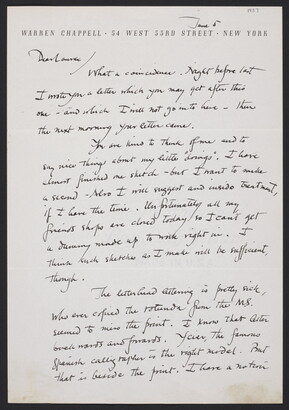 1937
June 5
WARREN CHAPPELL · 54 WEST 53RD STREET · NEW YORK
Dear Lawrence /
What a coincidence. Night before last
I wrote you a letter which you may get after this
one - and which I will not go into here - then
the next morning your letter came.
You are kind to think of me and to
say nice things about my little 'doings'. I have
almost finished one sketch - but I want to make
a second - Also I will suggest and inside treatment,
if I have the time. Unfortunately all my
friends shops are closed today so I can't get
a dummy made up to work right in. I
think such sketches as I make will be sufficient,
though.
The letterhead lettering is pretty sick,
Who ever copied the rotunda from the MS.
seemed to miss the point. I know that letter
backwards and forwards. Yciar, the famous
Spanish calligrapher is the right model. But
that is beside the point. I have a notion